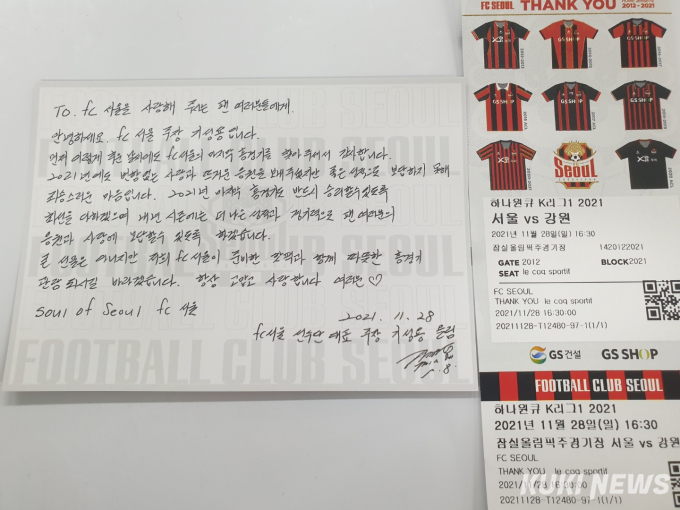 To. fc 서울을 사랑해 주시는 팬 여러분들에게.
안녕하세요. fc 서울 주장 기성용입니다.
먼저 이렇게 추운 날씨에도 fc서울의 마지막 홈경기를 찾아주셔서 감사합니다.
2021년에도 변함없는 사랑과 뜨거운 응원을 보내주셨지만 좋은 성적으로 보답하지 못해
죄송스러운 마음입니다. 2021년 마지막 홈경기도 반드시 승리할수있도록
최선을 다하겠으며 내년 시즌에는 더 나은 성적과 경기력으로 팬 여러분의
응원과 사랑에 보답할수 있도록 하겠습니다.
큰 선물은 아니지만 저희 fc서울이 준비한 핫팩과 함께 따뜻한 홈경기
관람 되시길 바라겠습니다. 항상 고맙고 사랑합니다 여러분
Soul of Seoul fc 서울
2021. 11. 28
fc서울 선수단 대표 주장 기성용 올림
FOOTBALL CLUB SEOUL
FC SEOUL
THANK YOU
2012-2021
GS SHOP
SEOUL
하나원큐 K리그1 2021
서울 vs 강원
2021년 11월 28일(일) 16:30
잠실올림픽주경기장 1420122021
GATE 2012 BLOCK 2021
SEAT le coq sportif
FC SEOUL
THANK YOU le coq sportif
2021/11/28 16-30-00
20211128-T12480-97-1(1/1)
GS건설 GS SHOP
FOOTBALL CLUB SEOUL
하나원큐 K리그1 2021
2021년 11월 28일(일) 16:30
잠실올림픽주경기장 서울 vs 강원
FC SEOUL
THANK YOU le coq sportif
2021/11/28 16-30-00
20211128-T12480-97-1(1/1)
KUKI NEWS